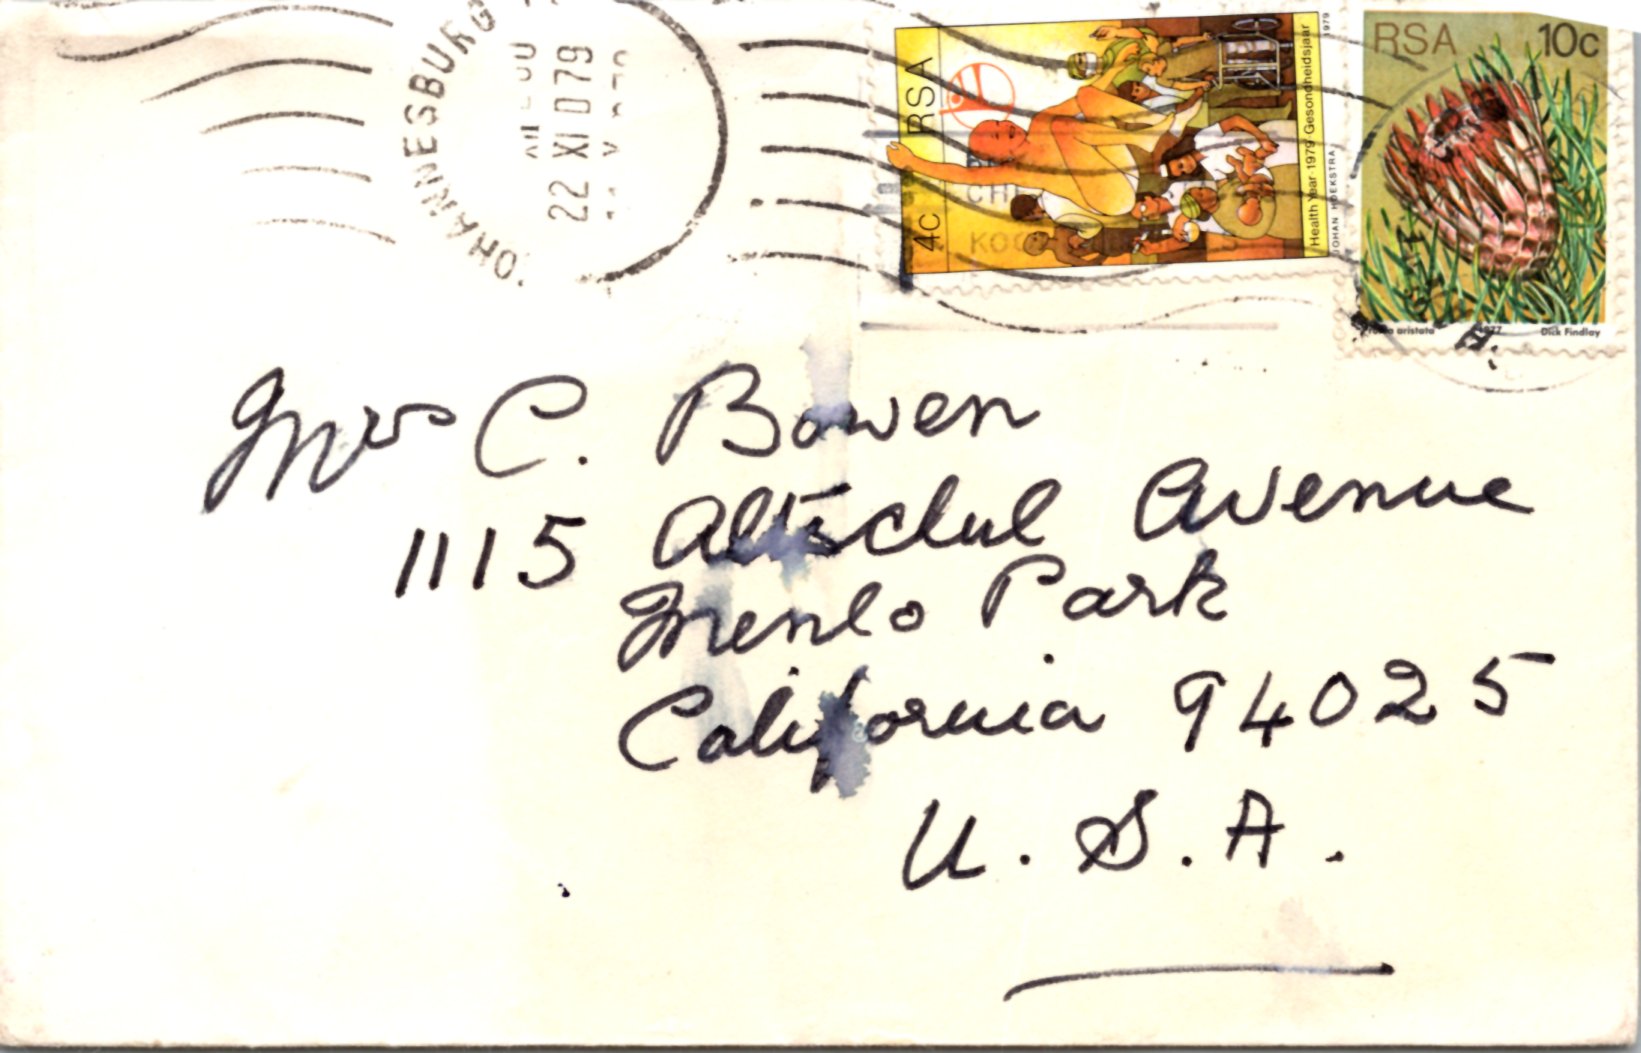 JOHANNESBURG
22 XI 1979
RSA
4c
Health Year · 1979 · Gesondheidsjaar
JOHAN HOEKSTRA
1979
RSA 10c
aristata 1977 Dick Findlay
Mrs C. Bowen
1115 Altschul Avenue
Menlo Park
California 94025
U. S. A.